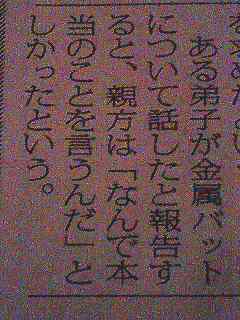 ある弟子が金属バット
について話したと報告す
ると、親方は「なんで本
当のことを言うんだ」と
しかったという。